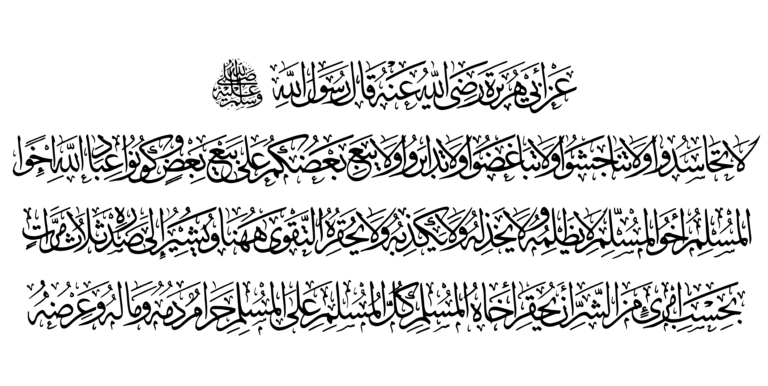 عَنْ أَبِي هُرَيْرَةَ رَضِيَ اللّٰهُ عَنْهُ قَالَ رَسُولُ اللّٰهِ صلى الله عليه وسلم
لَا تَحَاسَدُوا وَلَا تَنَاجَشُوا وَلَا تَبَاغَضُوا وَلَا تَدَابَرُوا وَلَا يَبِعْ بَعْضُكُمْ عَلَى بَيْعِ بَعْضٍ وَكُونُوا عِبَادَ اللّٰهِ إِخْوَانًا
الْمُسْلِمُ أَخُو الْمُسْلِمِ لَا يَظْلِمُهُ وَلَا يَخْذُلُهُ وَلَا يَكْذِبُهُ وَلَا يَحْقِرُهُ التَّقْوَى هَهُنَا وَيُشِيرُ إِلَى صَدْرِهِ ثَلَاثَ مَرَّاتٍ
بِحَسْبِ امْرِئٍ مِنَ الشَّرِّ أَنْ يَحْقِرَ أَخَاهُ الْمُسْلِمَ كُلُّ الْمُسْلِمِ عَلَى الْمُسْلِمِ حَرَامٌ دَمُهُ وَمَالُهُ وَعِرْضُهُ